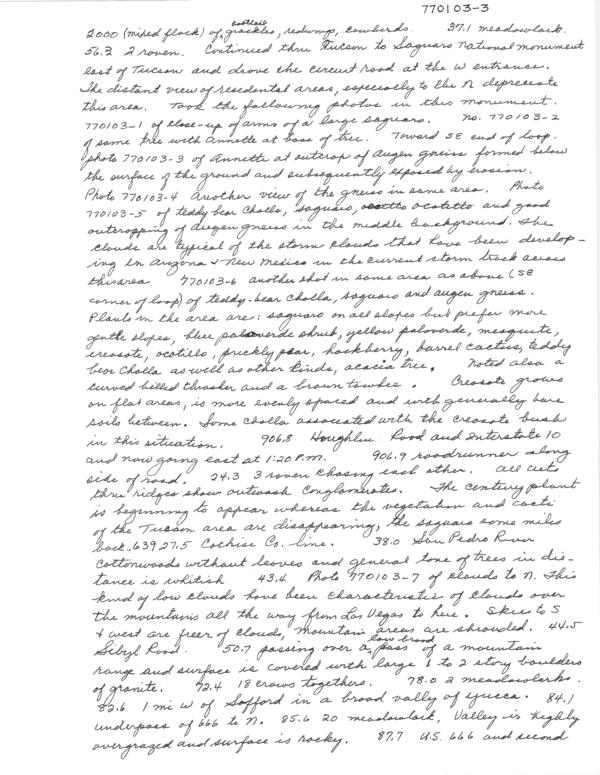 770103-3
boattail
2000 (mixed flock) of grackles, redwings, cowbirds. 37.1 meadowlark.
56.3 2 raven. Continued thru Tucson to Saguaro National monument
east of Tucson and drove the circuit road at the W entrance.
The distant view of residental areas, especially to the N depreciate
this area. Took the following photos in this monument.
770103-1 of close-up of arms of a large saguaro. No. 770103-2
of same tree with Annette at base of tree. Toward SE end of loop.
photo 770103-3 of Annette at outcrop of Augen gneiss formed below
the surface of the ground and subsequently exposed by erosion.
Photo 770103-4 Another view of the gneiss in same area. Photo
770103-5 of teddy bear cholla, saguaro, ocotillo and good
outcropping of augen gneiss in the middle background. The
clouds are typical of the storm clouds that have been develop-
ing in Arizona + New Mexico in the current storm track across
this area 770103-6 another shot in same area as above (SE
corner of loop) of teddy-bear cholla, saguaro and augen gneiss.
Plants in the area are: saguaro on all slopes but prefer more
gentle slopes, blue paloverde shrub, yellow paloverde, mesquite,
creosote, ocotillo, prickly pear, hackberry, barrel cactus, teddy
bear cholla as well as other kinds, acacia tree. Noted also a
curved billed thrasher and a brown towhee. Creosote grows
on flat areas, is more evenly spaced and with generally bare
soils between. Some cholla associated with the creosote bush
in this situation. 906.8 Houghlin Road and Interstate 10
and now going east at 1:20 P.M. 906.9 roadrunner along
side of road. 24.3 3 raven chasing each other. All cuts
thru ridges show outwash conglomerates. The century plant
is beginning to appear whereas the vegetation and cacti
of the Tucson area are disappearing, the saguaro some miles
back. 63927.5 Cochise Co. line. 38.0 San Pedro River
Cottonwoods without leaves and general tone of trees in dis-
tance is whitish 43.4 Photo 770103-7 of clouds to N. This
kind of low clouds have been characteristic of clouds over
the mountains all the way from Las Vegas to here. Skies to S
+ west are freer of clouds, mountain areas are shrouded. 44.5
low broad
Sibyl Road. 50.7 passing over a pass of a mountain
range and surface is covered with large 1 to 2 story boulders
of granite. 72.4 18 crows togethers. 78.0 2 meadowlarks.
82.6 1 mi W of Safford in a broad valley of yucca. 84.1
underpass of 666 to N. 85.6 20 meadowlark, Valley is highly
overgrazed and surface is rocky. 87.7 U.S. 666 and second